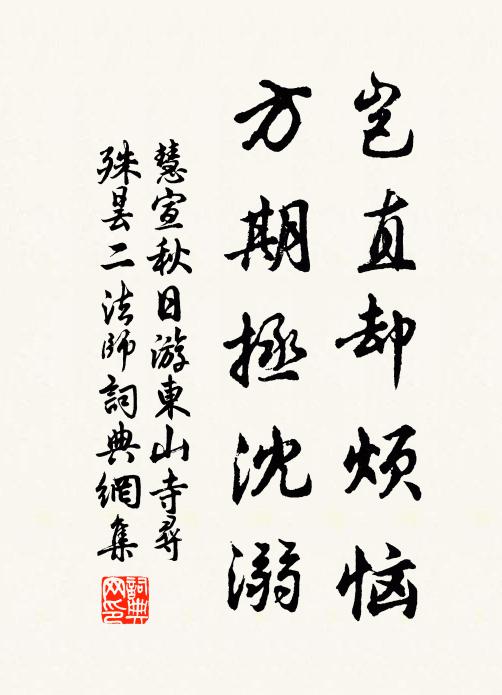 岂直却烦恼
方期拯沈溺
慧宣秋日游東山寺尋
殊曇二法師詞典網集
詞典网印